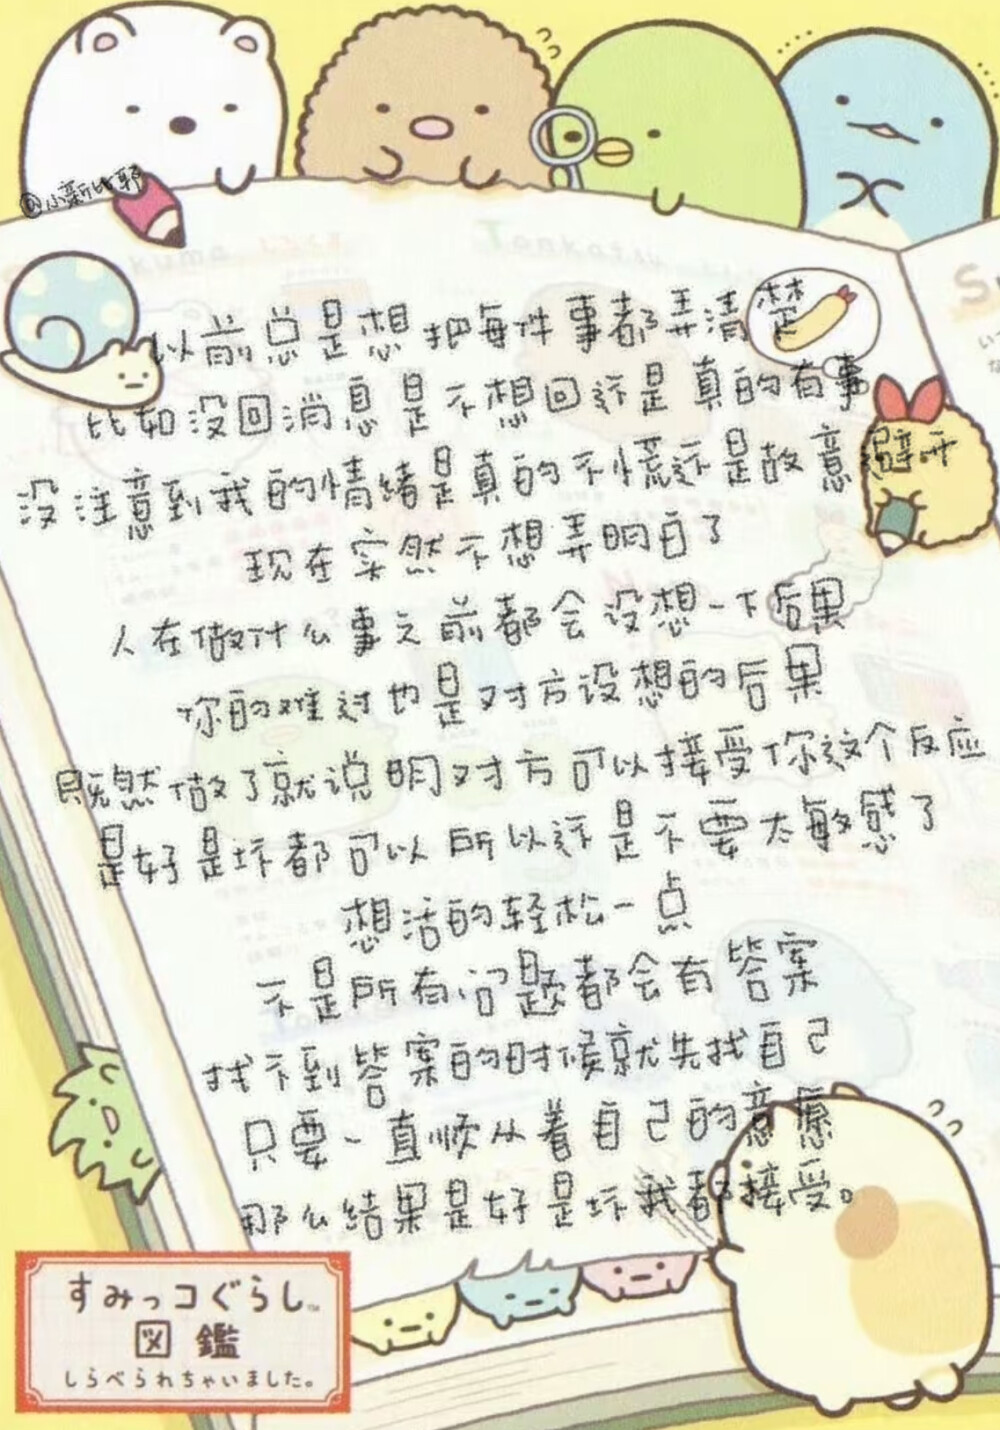 @小新比耶
以前总是想把每件事都弄清楚
比如没回消息是不想回还是真的有事
没注意到我的情绪是真的不慌还是故意避开
现在突然不想弄明白了
人在做什么事之前都会没想一下后果
你的难过也是对方设想的后果
既然做了就说明对方可以接受你这个反应
是好是坏都可以所以还是不要太敏感了
想活的轻松一点
不是所有问题都会有答案
找不到答案的时候就先找自己
只要一直顺从着自己的意愿
那么结果是好是坏我都接受。
すみっコぐらし™
図鑑
しらべられちゃいました。